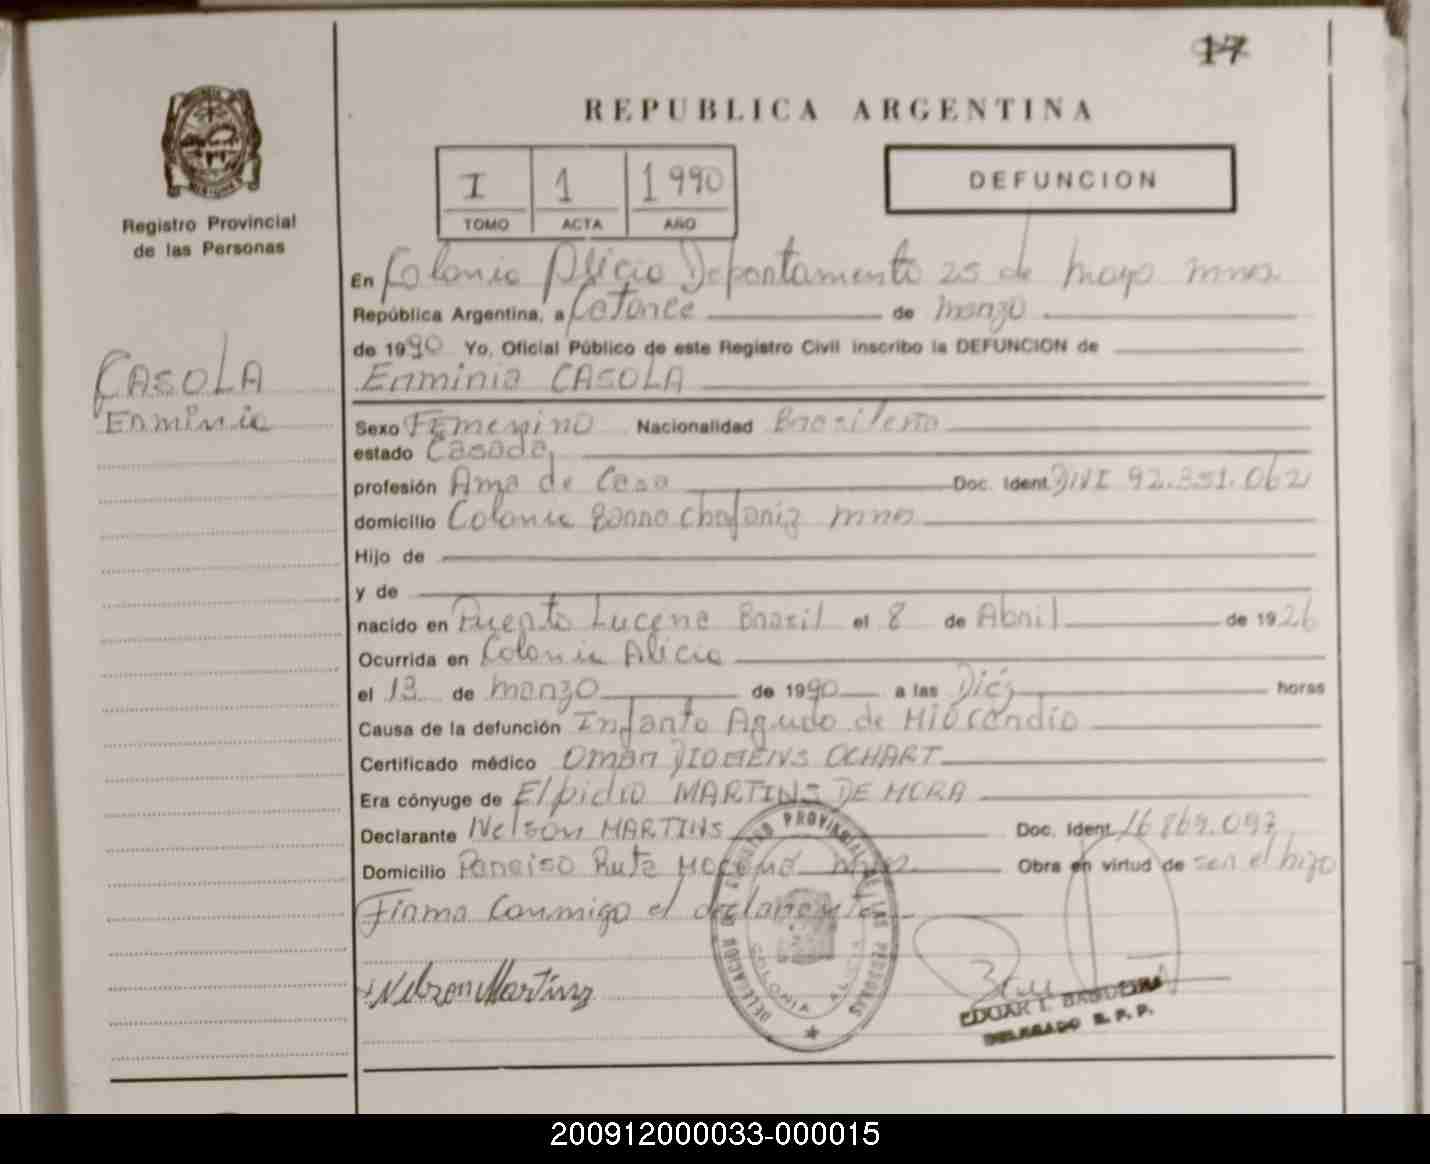 17
REPUBLICA ARGENTINA
Registro Provincial
de las Personas
I 1 1990
TOMO ACTA AÑO
DEFUNCION
En Colonia Alicia Departamento 25 de mayo mnes
República Argentina, a Catorce de marzo
de 1990 Yo, Oficial Público de este Registro Civil inscribo la DEFUNCION de
Erminia CASOLA
CASOLA
Erminia
Sexo Femenino Nacionalidad Brasileña
estado Casada
profesión Ama de Casa Doc. Ident. DNI 92.351.062
domicilio Colonia mnes
Hijo de
y de
nacido en Puerto Lucena Brasil el 8 de Abril de 1926
Ocurrida en Colonia Alicia
el 13 de marzo de 1990 a las Diéz horas
Causa de la defunción Infarto Agudo de Miocardio
Certificado médico Omar OCHART
Era cónyuge de Elpidio MARTINS DE MORA
Declarante Nelson MARTINS Doc. Ident. 16869.097
Domicilio Paraiso Ruta mnes Obra en virtud de ser el hijo
Firma Conmigo el declarante
Nelson Martins
DELEGACION REGISTRO PROVINCIAL DE LAS PERSONAS
COLONIA ALICIA
EDGAR T.
DELEGADO R. P. P.
200912000033-000015